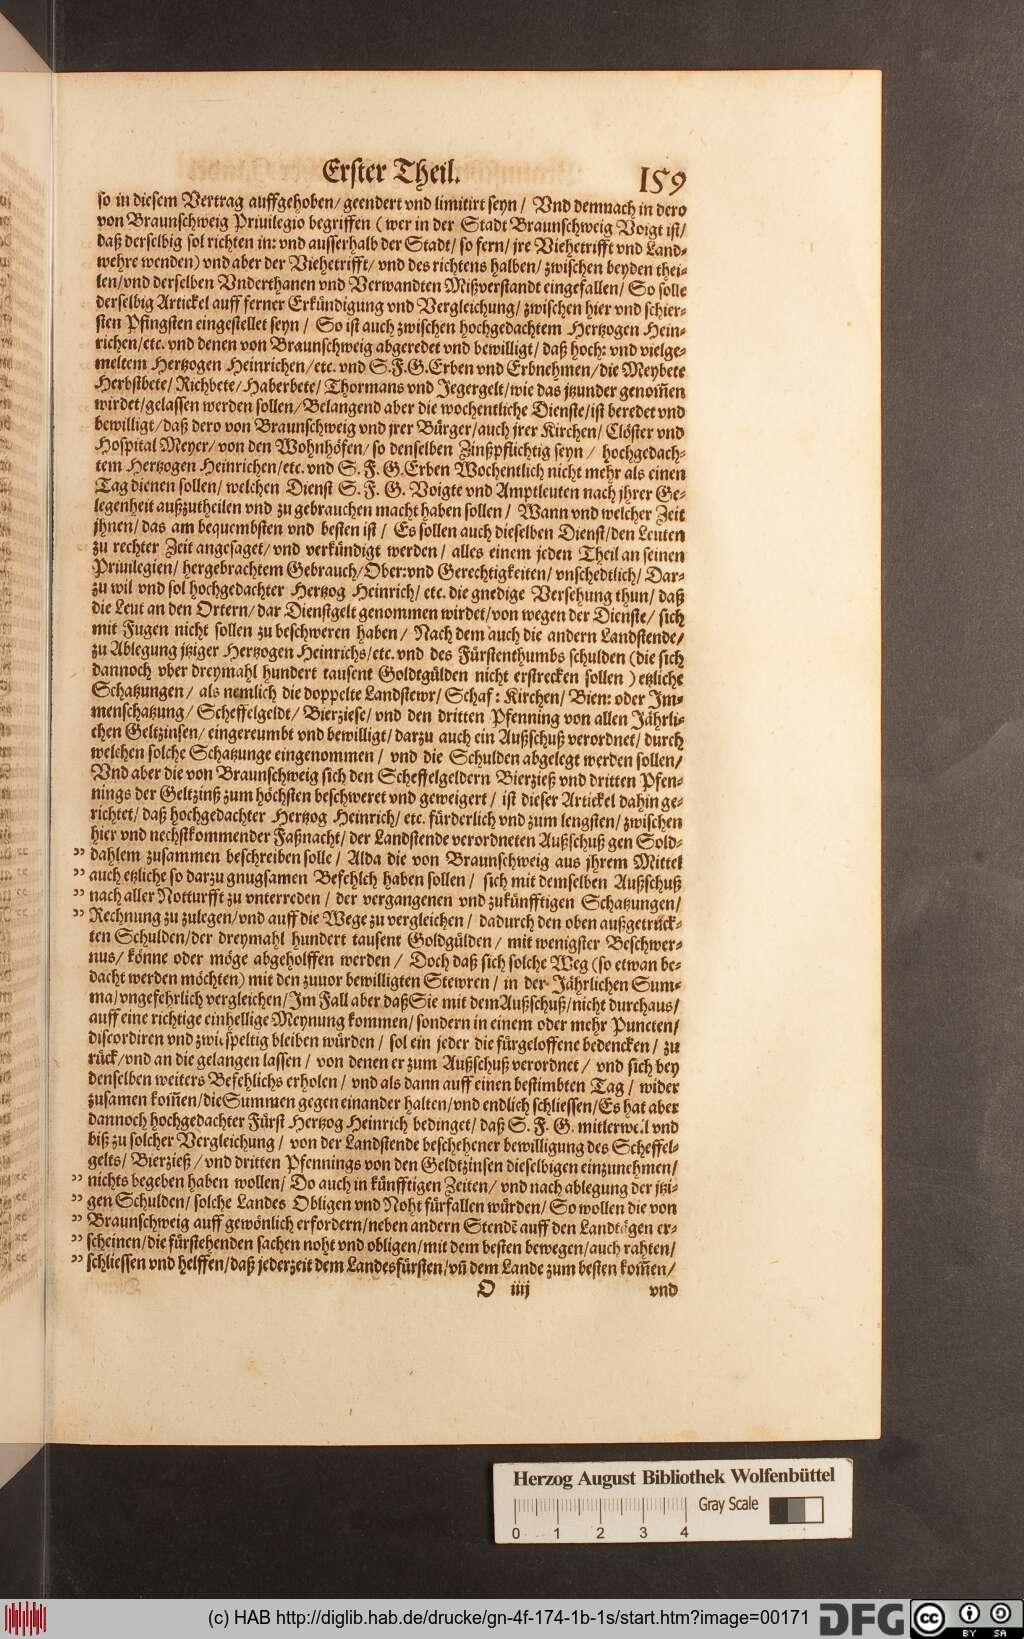 Erster Theil. 159
so in diesem Vertrag auffgehoben/ geendert vnd limitirt seyn/ Vnd demnach in dero
von Braunschweig Priuilegio begriffen (wer in der Stadt Braunschweig Voigt ist/
daß derselbig sol richten in: vnd ausserhalb der Stadt/ so fern/ jre Viehetrifft vnd Land-
wehre wenden) vnd aber der Viehetrifft/ vnd des richtens halben/ zwischen beyden thei-
len/ vnd derselben Vnderthanen vnd Verwandten Mißverstandt eingefallen/ So solle
derselbig Artickel auff ferner Erkündigung vnd Vergleichung/ zwischen hier vnd schier-
sten Pfingsten eingestellet seyn/ So ist auch zwischen hochgedachtem Hertzogen Hein-
richen/ etc. vnd denen von Braunschweig abgeredet vnd bewilligt/ daß hoch: vnd vielge-
meltem Hertzogen Heinrichen/ etc. vnd S. F. G. Erben vnd Erbnehmen/ die Meybete
Herbstbete/ Richbete/ Haberbete/ Thormans vnd Jegergelt/ wie das jtzunder genom̃en
wirdet/ gelassen werden sollen/ Belangend aber die wochentliche Dienste/ ist beredet vnd
bewilligt/ daß dero von Braunschweig vnd jrer Bürger/ auch jrer Kirchen/ Clöster vnd
Hospital Meyer/ von den Wohnhöfen/ so denselben Zinßpflichtig seyn/ hochgedach-
tem Hertzogen Heinrichen/ etc. vnd S. F. G. Erben Wochentlich nicht mehr als einen
Tag dienen sollen/ welchen Dienst S. F. G. Voigte vnd Amptleuten nach jhrer Ge-
legenheit außzutheilen vnd zu gebrauchen macht haben sollen/ Wann vnd welcher Zeit
jhnen/ das am bequembsten vnd besten ist/ Es sollen auch dieselben Dienst/ den Leuten
zu rechter Zeit angesaget/ vnd verkündigt werden/ alles einem jeden Theil an seinen
Priuilegien/ hergebrachtem Gebrauch/ Ober: vnd Gerechtigkeiten/ vnschedtlich/ Dar-
zu wil vnd sol hochgedachter Hertzog Heinrich/ etc. die gnedige Versehung thun/ daß
die Leut an den Ortern/ dar Dienstgelt genommen wirdet/ von wegen der Dienste/ sich
mit Fugen nicht sollen zu beschweren haben/ Nach dem auch die andern Landstende/
zu Ablegung jtziger Hertzogen Heinrichs/ etc. vnd des Fürstenthumbs schulden (die sich
dannoch vber dreymahl hundert tausent Goldtgülden nicht erstrecken sollen) etzliche
Schatzungen/ als nemlich die doppelte Landstewr/ Schaf: Kirchen/ Bien: oder Im-
menschatzung/ Scheffelgeldt/ Bierziese/ vnd den dritten Pfenning von allen Jährli-
chen Geltzinsen/ eingereumbt vnd bewilligt/ darzu auch ein Außschuß verordnet/ durch
welchen solche Schatzunge eingenommen/ vnd die Schulden abgelegt werden sollen/
Vnd aber die von Braunschweig sich den Scheffelgeldern Bierzieß vnd dritten Pfen-
nings der Geltzinß zum höchsten beschweret vnd geweigert/ ist dieser Artickel dahin ge-
richtet/ daß hochgedachter Hertzog Heinrich/ etc. fürderlich vnd zum lengsten/ zwischen
hier vnd nechstkommender Faßnacht/ der Landstende verordneten Außschuß gen Sold-
” dahlem zusammen beschreiben solle/ Alda die von Braunschweig aus jhrem Mittel
” auch etzliche so darzu gnugsamen Befehlch haben sollen/ sich mit demselben Außschuß
” nach aller Notturfft zu vnterreden/ der vergangenen vnd zukünfftigen Schatzungen/
” Rechnung zu zulegen/ vnd auff die Wege zu vergleichen/ dadurch den oben außgetrück-
ten Schulden/ der dreymahl hundert tausent Goldgülden/ mit wenigster Beschwer-
nus/ könne oder möge abgeholffen werden/ Doch daß sich solche Weg (so etwan be-
dacht werden möchten) mit den zuuor bewilligten Stewren/ in der Jährlichen Sum-
ma/ vngefehrlich vergleichen/ Im Fall aber daß Sie mit dem Außschuß/ nicht durchaus/
auff eine richtige einhellige Meynung kommen/ sondern in einem oder mehr Puncten/
discordiren vnd zwispeltig bleiben würden/ sol ein jeder die fürgeloffene bedencken/ zu
rück/ vnd an die gelangen lassen/ von denen er zum Außschuß verordnet/ vnd sich bey
denselben weiters Befehlichs erholen/ vnd als dann auff einen bestimbten Tag/ wider
zusamen kom̃en/ die Summen gegen einander halten/ vnd endlich schliessen/ Es hat aber
dannoch hochgedachter Fürst Hertzog Heinrich bedinget/ daß S. F. G. mitlerweil vnd
biß zu solcher Vergleichung/ von der Landstende beschehener bewilligung des Scheffel-
gelts/ Bierzieß/ vnd dritten Pfennings von den Geldtzinsen dieselbigen einzunehmen/
” nichts begeben haben wollen/ Do auch in künfftigen Zeiten/ vnd nach ablegung der jtzi-
” gen Schulden/ solche Landes Obligen vnd Noht fürfallen würden/ So wollen die von
” Braunschweig auff gewönlich erfordern/ neben andern Stendẽ auff den Landtägen er-
” scheinen/ die fürstehenden sachen noht vnd obligen/ mit dem besten bewegen/ auch rahten/
” schliessen vnd helffen/ daß jederzeit dem Landesfürsten/ vñ dem Lande zum besten kom̃en/
O iiij vnd
Herzog August Bibliothek Wolfenbüttel
Gray Scale
0 1 2 3 4
(c) HAB http://diglib.hab.de/drucke/gn-4f-174-1b-1s/start.htm?image=00171 DFG cc BY SA